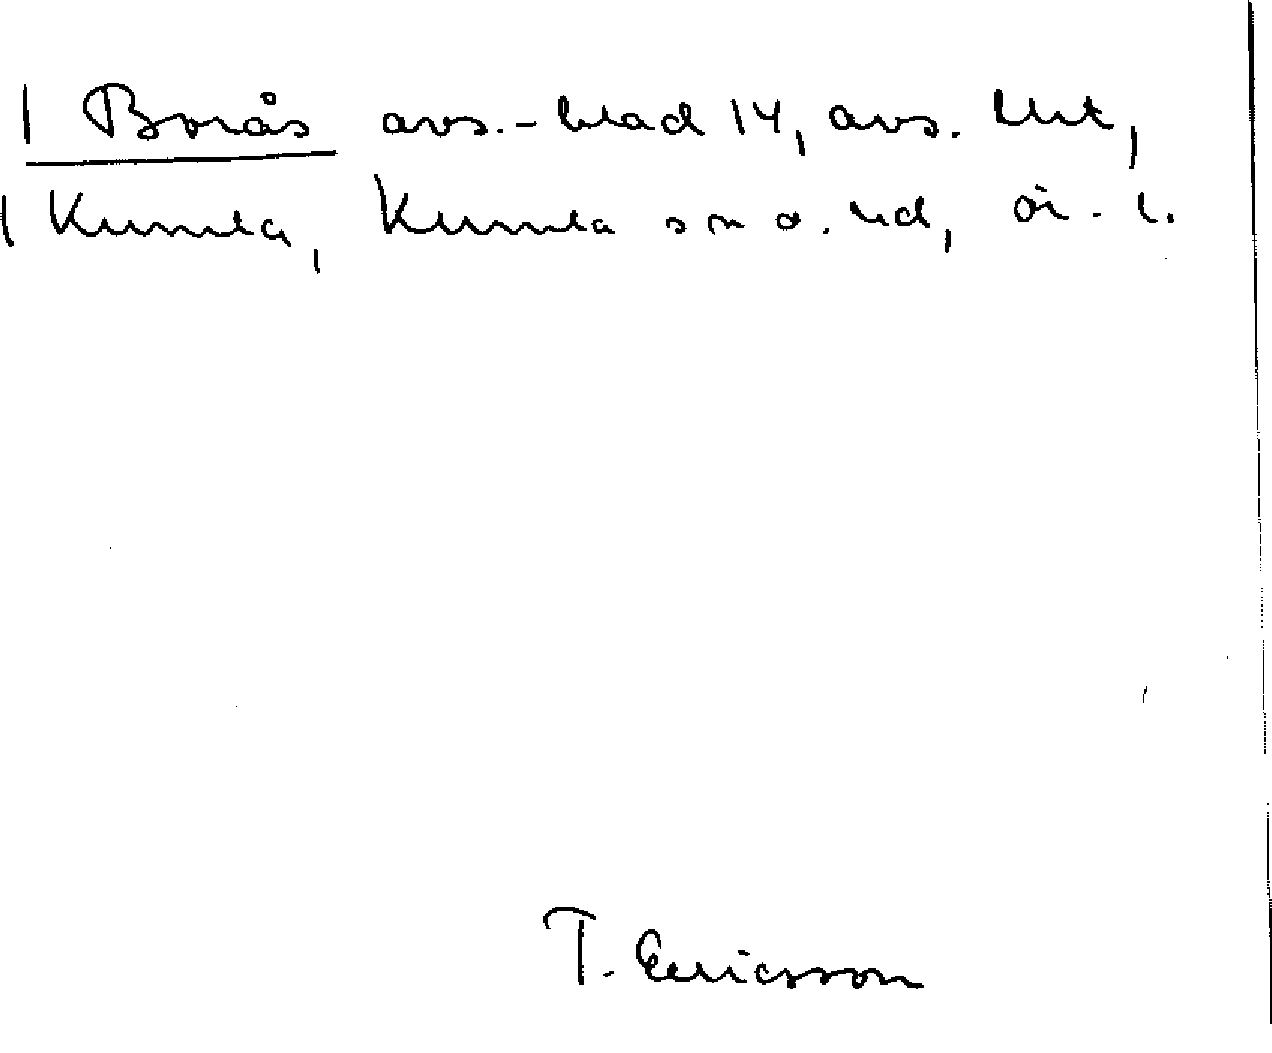 | Borås avs.-blad 14, avs. lut,
| Kumla, Kumla sn o. hd, ör. l.
T. Ericsson